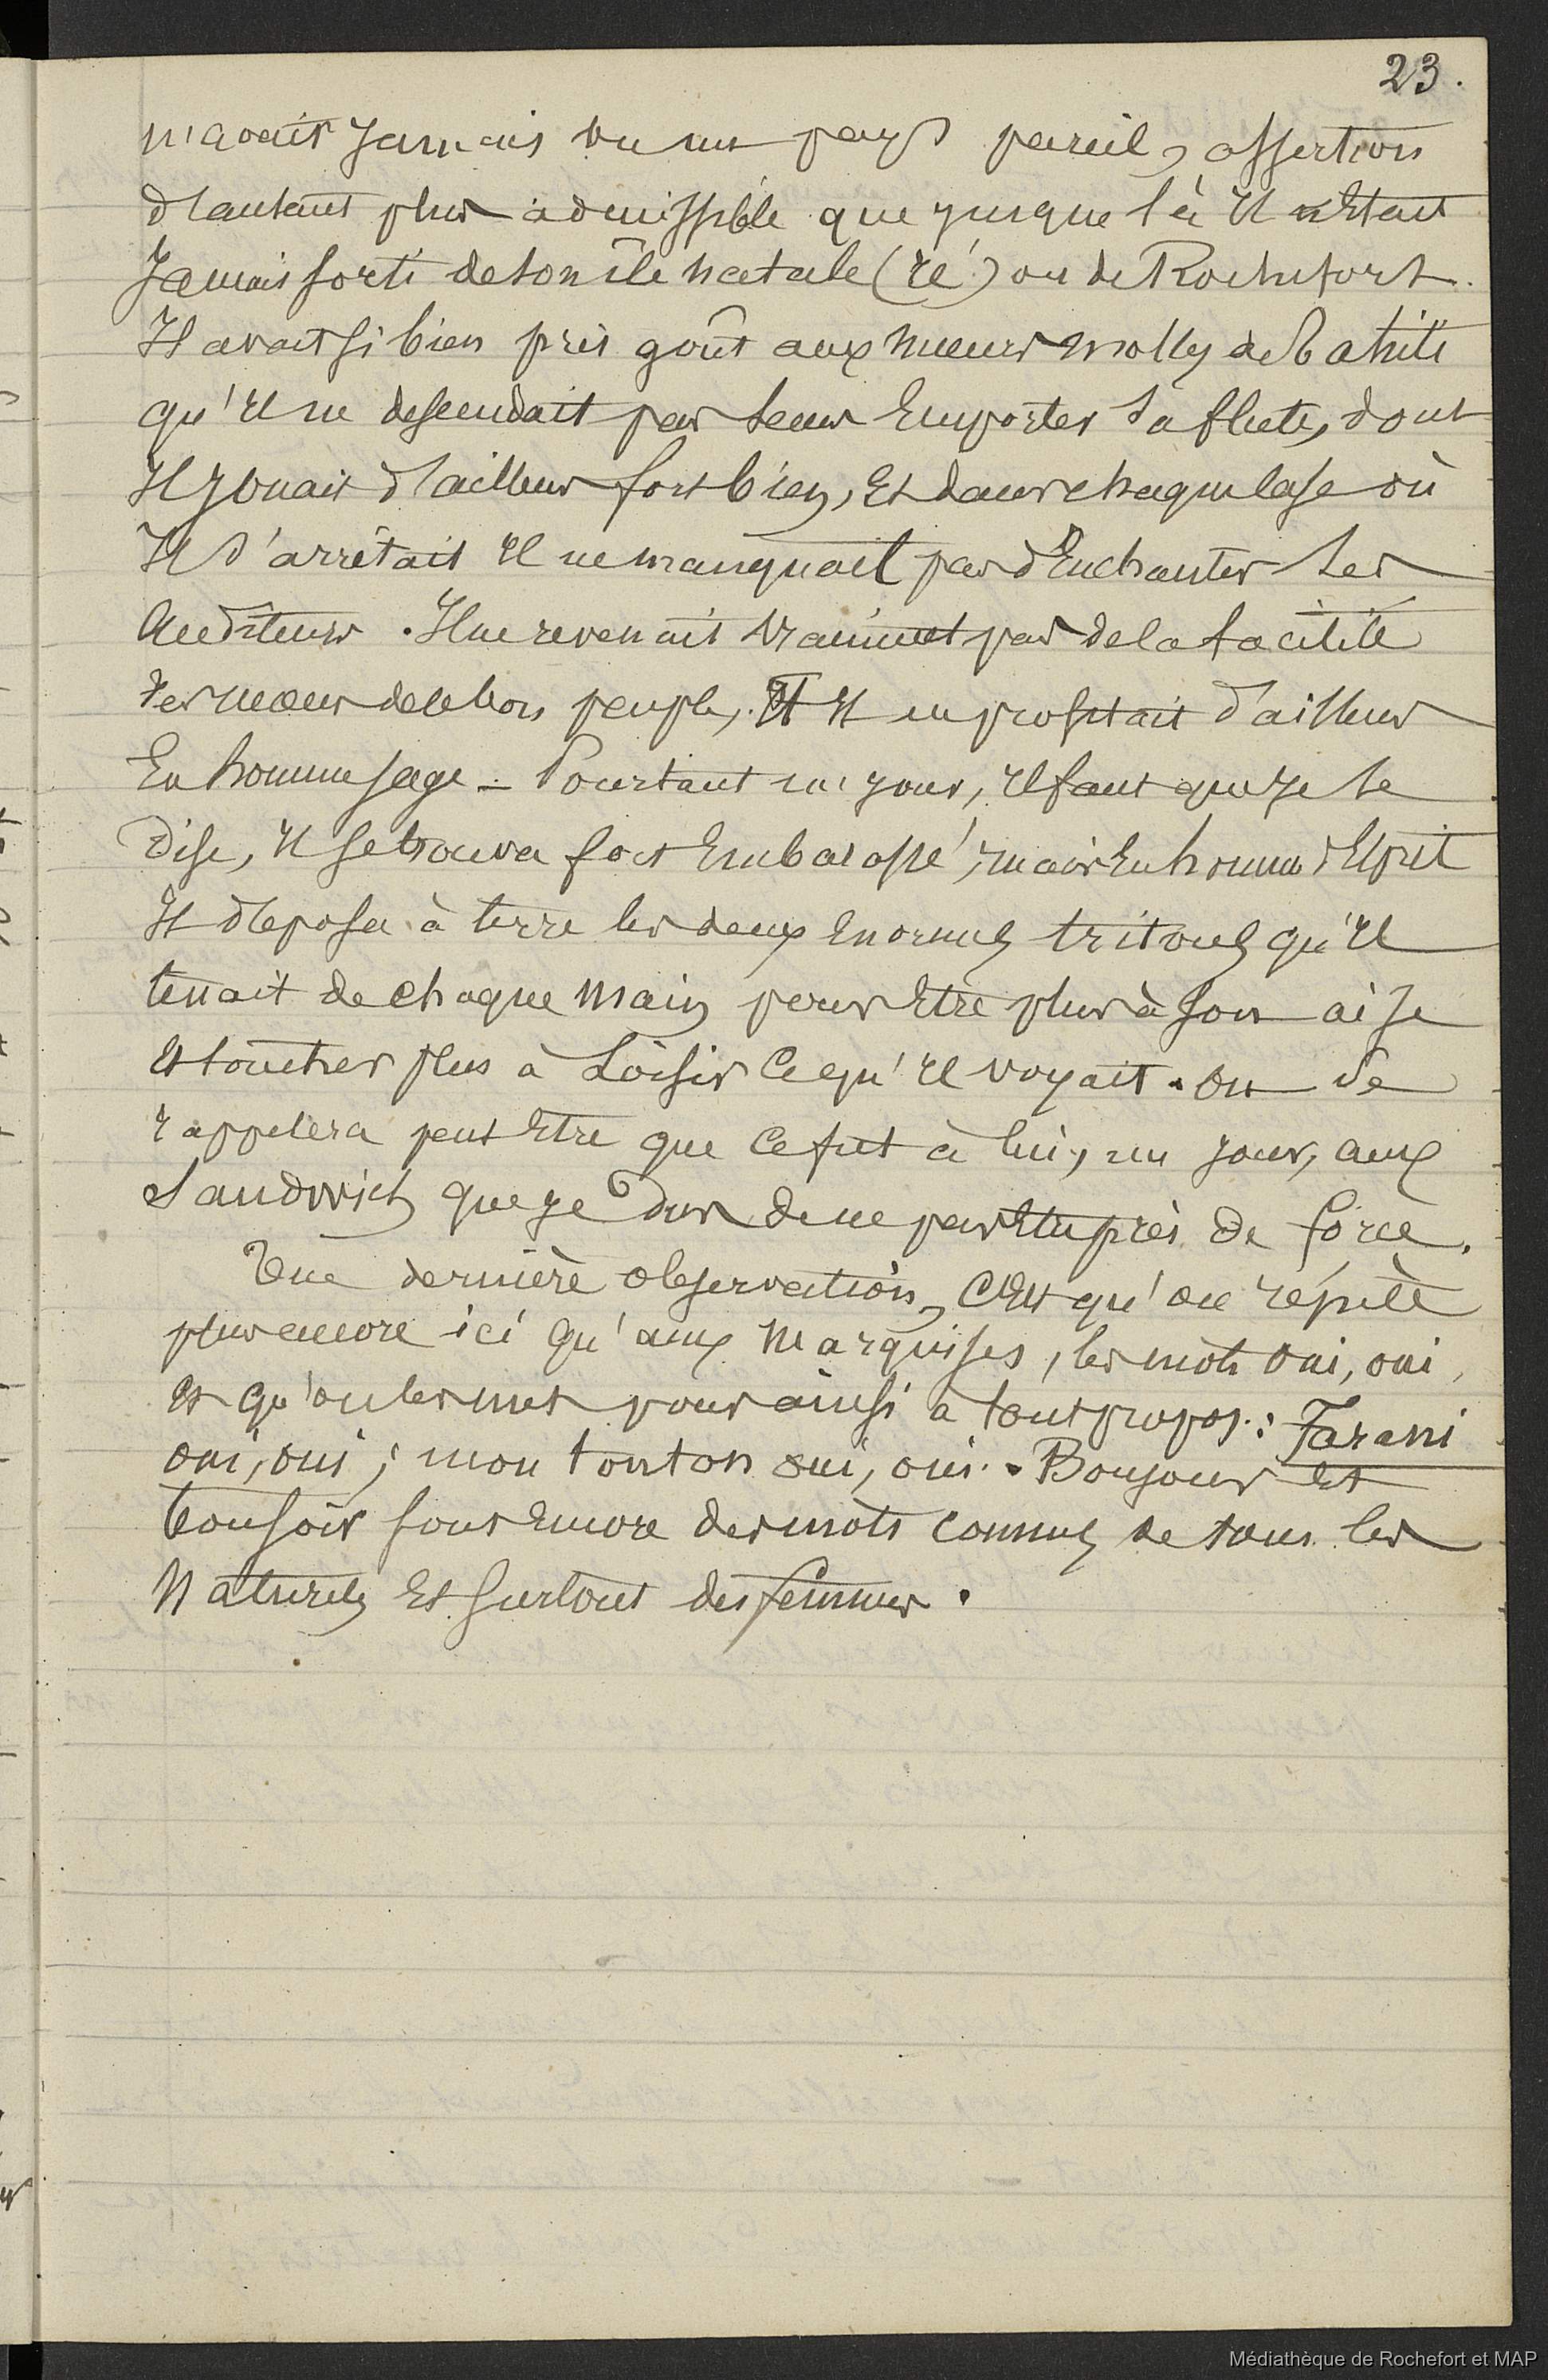 23.
n'avait jamais vu un pays pareil, assertion
d'autant plus admissible que jusque là il n'était
jamais sorti de son île natale (ré) ou de Rochefort.
Il avait si bien pris goût aux mœurs molles de Tahiti
qu'il ne descendait pas sans emporter sa flute, dont
il jouait d'ailleurs fort bien, et dans chaque case où
il s'arrêtait il ne manquait pas d'enchanter ses
auditeurs. Il ne revenait vraiment pas de la facilité
des mœurs de ce bon peuple, il en profitait d'ailleurs
en homme sage - Pourtant un jour, il faut que je le
dise, il se trouva fort embarassé, mais en homme d'esprit
il déposa à terre les deux énormes tritons qu'il
tenait de chaque main pour être plus à son aise
et toucher plus à loisir ce qu'il voyait. On se
rappelera peut être que ce fut à lui, un jour, aux
Sandwich que je dus de ne pas être pris de force.
Une dernière observation, c'est qu'on répète
plus encore ici qu'aux Marquises, les mots oui, oui,
et qu'on les met pour ainsi à tout propos : Farani
oui, oui ; mon tonton oui, oui. Bonjour et
bonsoir sont encore des mots connus de tous les
naturels et surtout des femmes.
Médiathèque de Rochefort et MAP